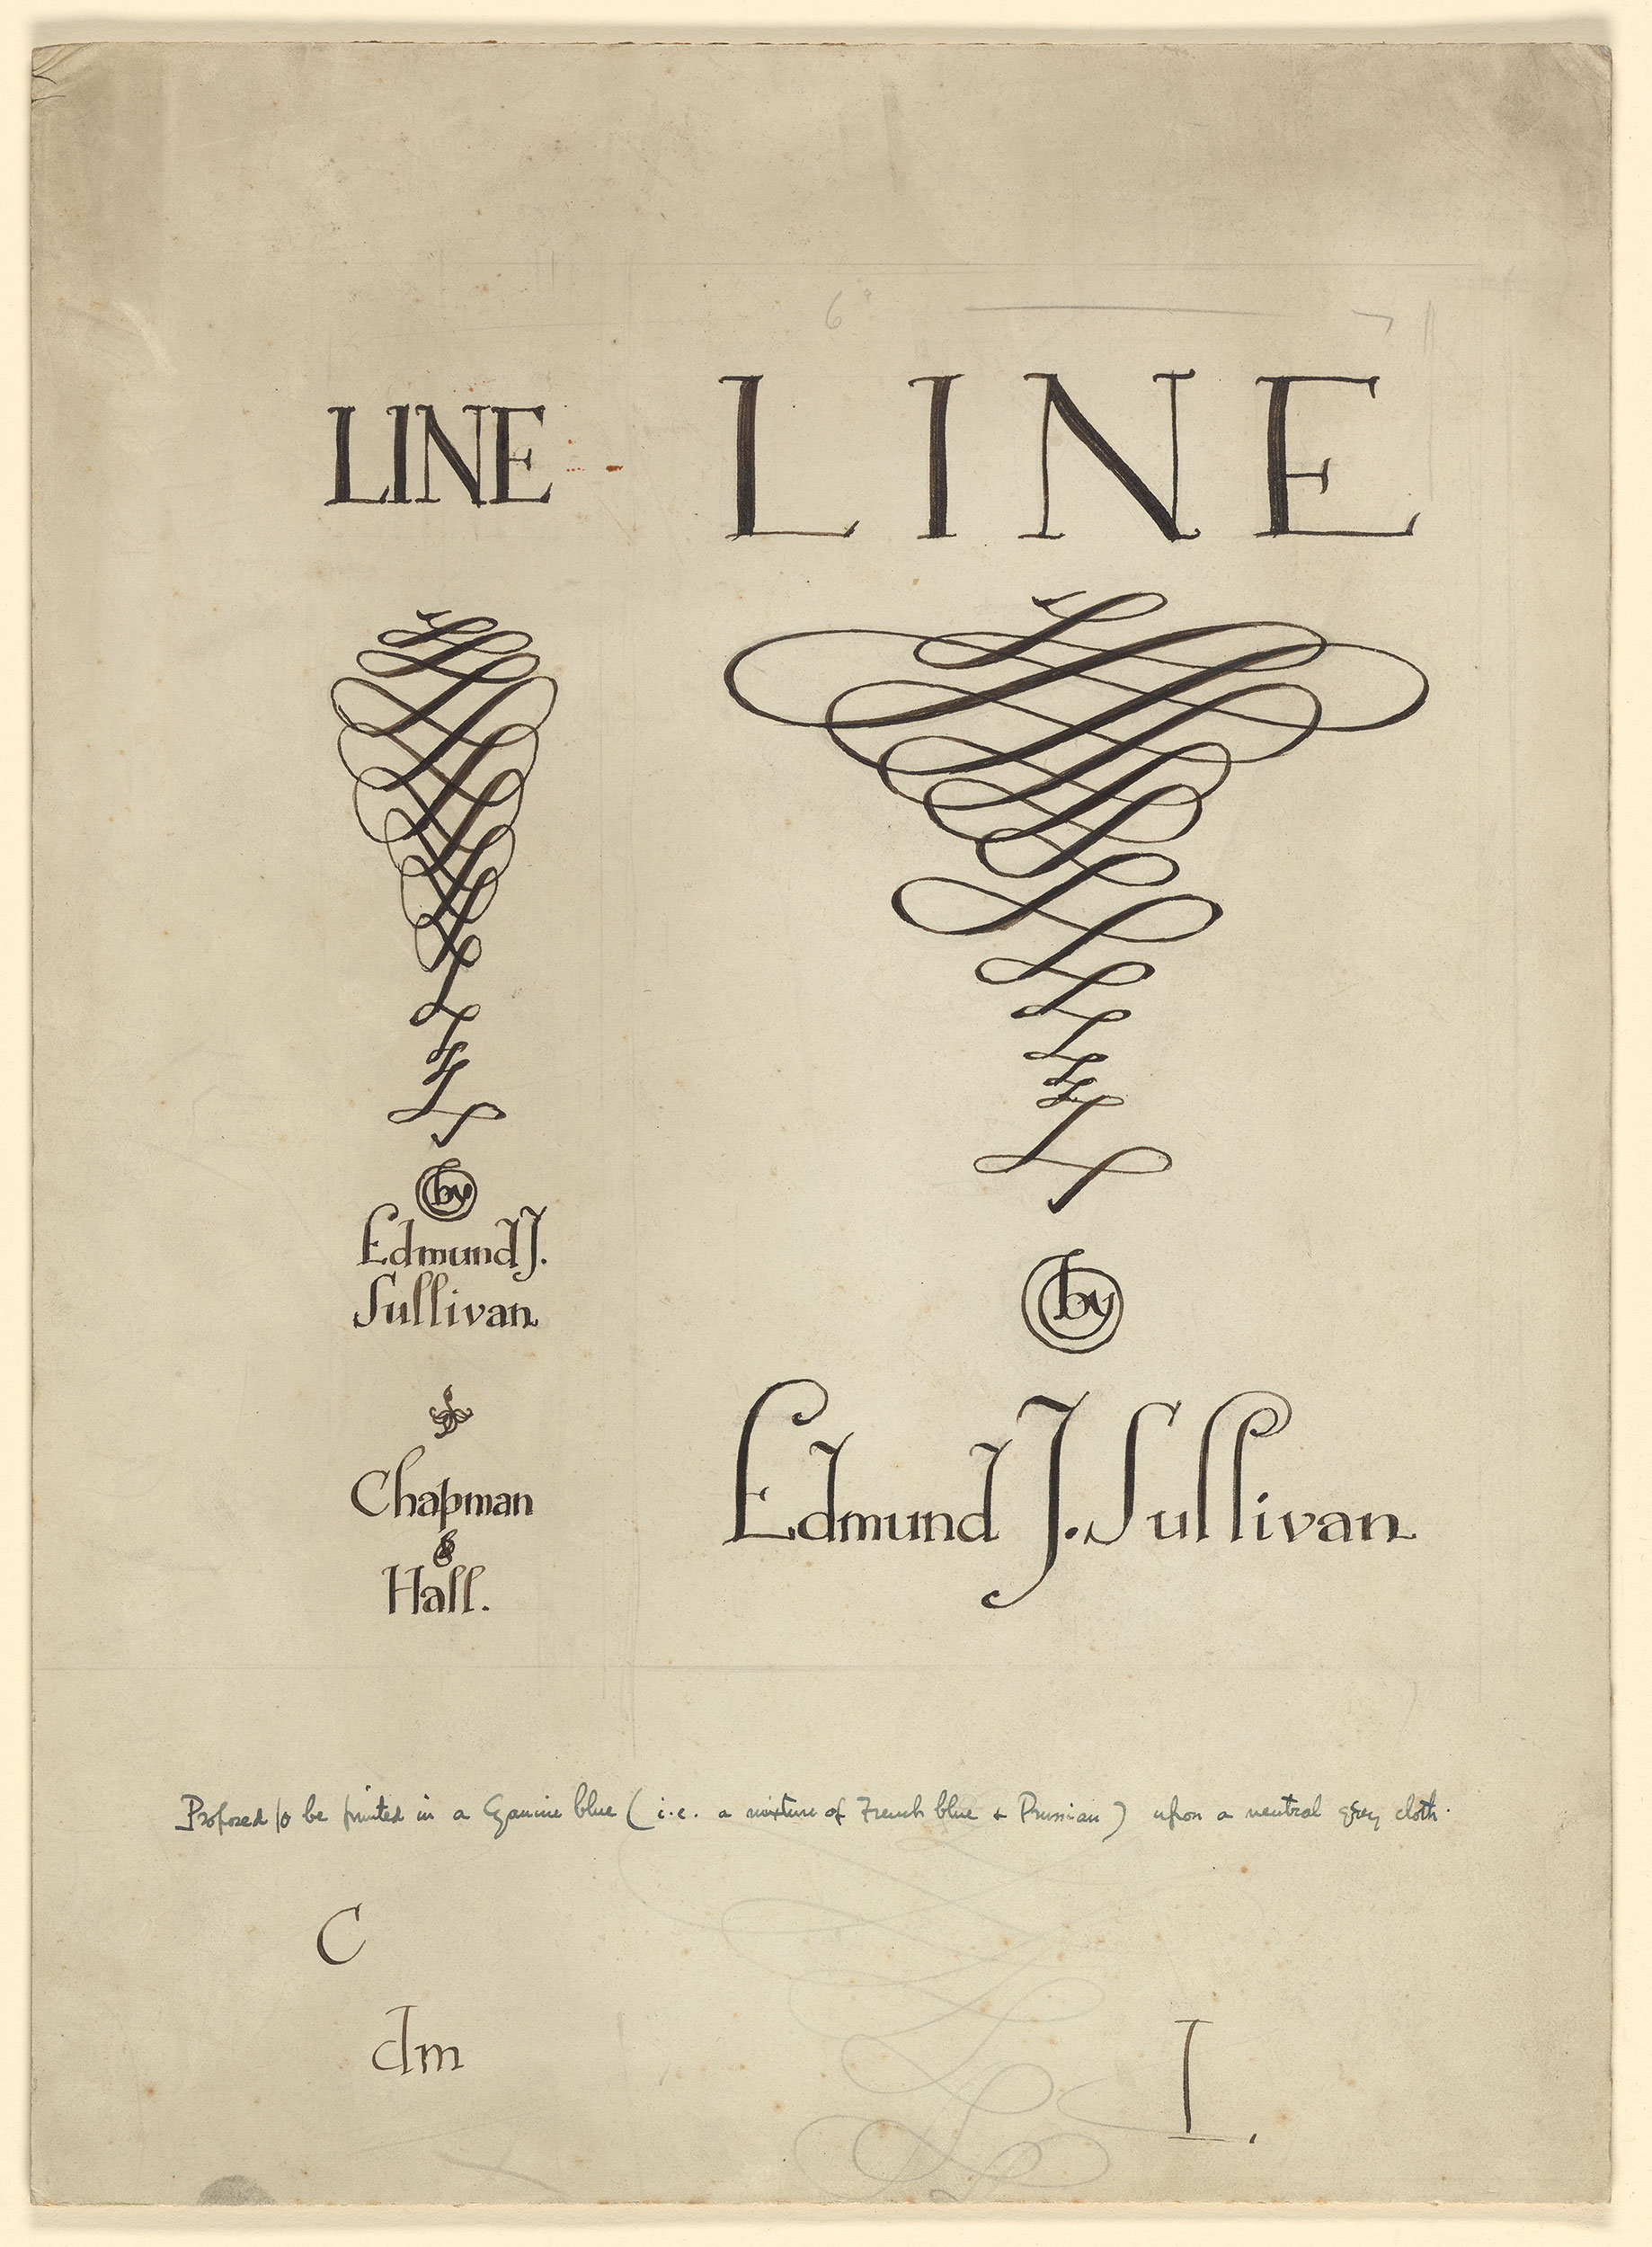 LINE
by
Edmund J.
Sullivan
Chapman
&
Hall.
6"
LINE
by
Edmund J. Sullivan
Proposed to be printed in a Cyanine blue (i.e. a mixture of French blue + Prussian) upon a neutral grey cloth.
C
dm
I.